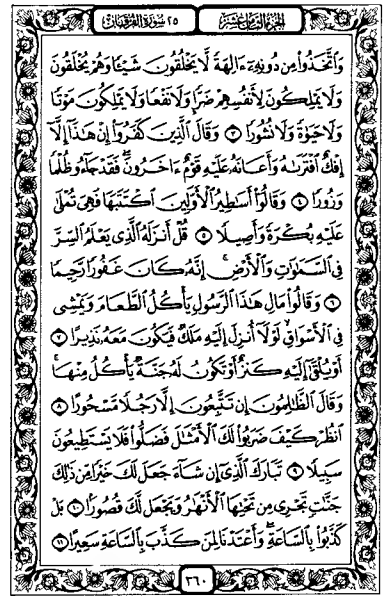 الجزء الثامن عشر
٢٥ سورة الفرقان
وَاتَّخَذُوا مِن دُونِهِ ءَالِهَةً لَّا يَخْلُقُونَ شَيْئًا وَهُمْ يُخْلَقُونَ
وَلَا يَمْلِكُونَ لِأَنفُسِهِمْ ضَرًّا وَلَا نَفْعًا وَلَا يَمْلِكُونَ مَوْتًا
وَلَا حَيَوٰةً وَلَا نُشُورًا ٣ وَقَالَ الَّذِينَ كَفَرُوا إِنْ هَٰذَا إِلَّا
إِفْكٌ افْتَرَىٰهُ وَأَعَانَهُ عَلَيْهِ قَوْمٌ ءَاخَرُونَ ۖ فَقَدْ جَاءُو ظُلْمًا
وَزُورًا ٤ وَقَالُوا أَسَٰطِيرُ الْأَوَّلِينَ اكْتَتَبَهَا فَهِيَ تُمْلَىٰ
عَلَيْهِ بُكْرَةً وَأَصِيلًا ٥ قُلْ أَنزَلَهُ الَّذِي يَعْلَمُ السِّرَّ
فِي السَّمَٰوَٰتِ وَالْأَرْضِ ۚ إِنَّهُ كَانَ غَفُورًا رَّحِيمًا
٦ وَقَالُوا مَالِ هَٰذَا الرَّسُولِ يَأْكُلُ الطَّعَامَ وَيَمْشِي
فِي الْأَسْوَاقِ ۙ لَوْلَا أُنزِلَ إِلَيْهِ مَلَكٌ فَيَكُونَ مَعَهُ نَذِيرًا ٧
أَوْ يُلْقَىٰ إِلَيْهِ كَنزٌ أَوْ تَكُونُ لَهُ جَنَّةٌ يَأْكُلُ مِنْهَا ۚ
وَقَالَ الظَّٰلِمُونَ إِن تَتَّبِعُونَ إِلَّا رَجُلًا مَّسْحُورًا ٨
انظُرْ كَيْفَ ضَرَبُوا لَكَ الْأَمْثَٰلَ فَضَلُّوا فَلَا يَسْتَطِيعُونَ
سَبِيلًا ٩ تَبَارَكَ الَّذِي إِن شَاءَ جَعَلَ لَكَ خَيْرًا مِّن ذَٰلِكَ
جَنَّٰتٍ تَجْرِي مِن تَحْتِهَا الْأَنْهَٰرُ وَيَجْعَل لَّكَ قُصُورًا ١٠ بَلْ
كَذَّبُوا بِالسَّاعَةِ ۖ وَأَعْتَدْنَا لِمَن كَذَّبَ بِالسَّاعَةِ سَعِيرًا ١١
٣٦٠